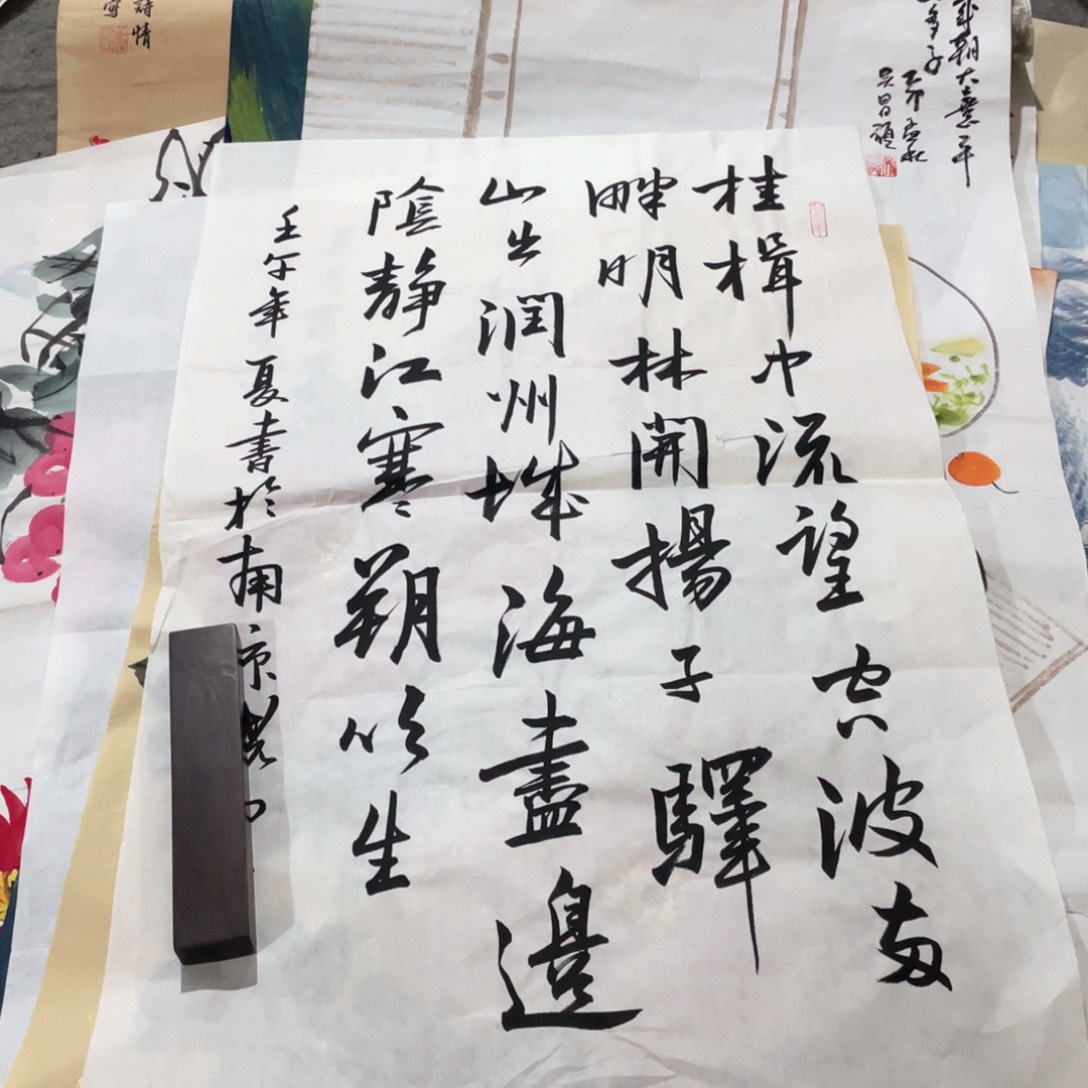 朝大意
多子
吳昌碩
桂楫中流望空波两
畔明林開揚子驛
山出潤州城海盡邊
陰静江寒朔吹生
壬午年夏書於南京
詩情
寫